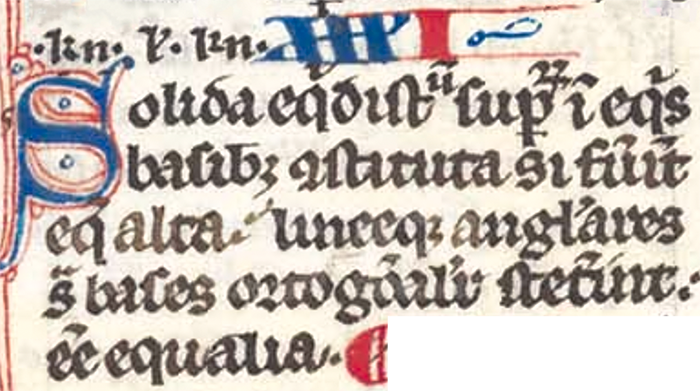 ·kn· l᾽· kn· XXXI
Solida eq̄distiū suꝑ ī eq̄s
basibꝫ ꝯstituta si fūīt
eq̄ alta lineeqꝫ angl̄ares
s̄ bases ortogōalr̄ stet̄int.
eē equalia.